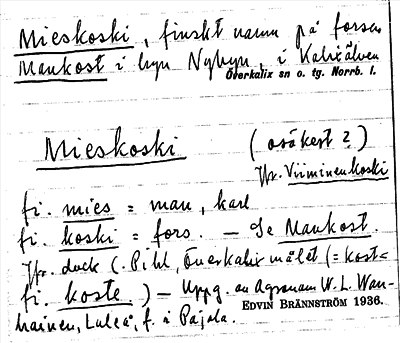 Mieskoski, finskt namn på forsen
Mankost i byn Nybyn, i Kalixälven
Överkalix sn o. tg. Norrb. l.
Mieskoski (osäkert?)
Jfr. Viiminenkoski
fi. mies = man, karl
fi. koski = fors. – Se Mankost.
Jfr. dock (. Pihl, Överkalixmålet (= kost <
fi. koste) – Uppg. av Agronom W. L. Wan-
hainen, Luleå, f. i Pajala.
EDVIN BRÄNNSTRÖM 1936.